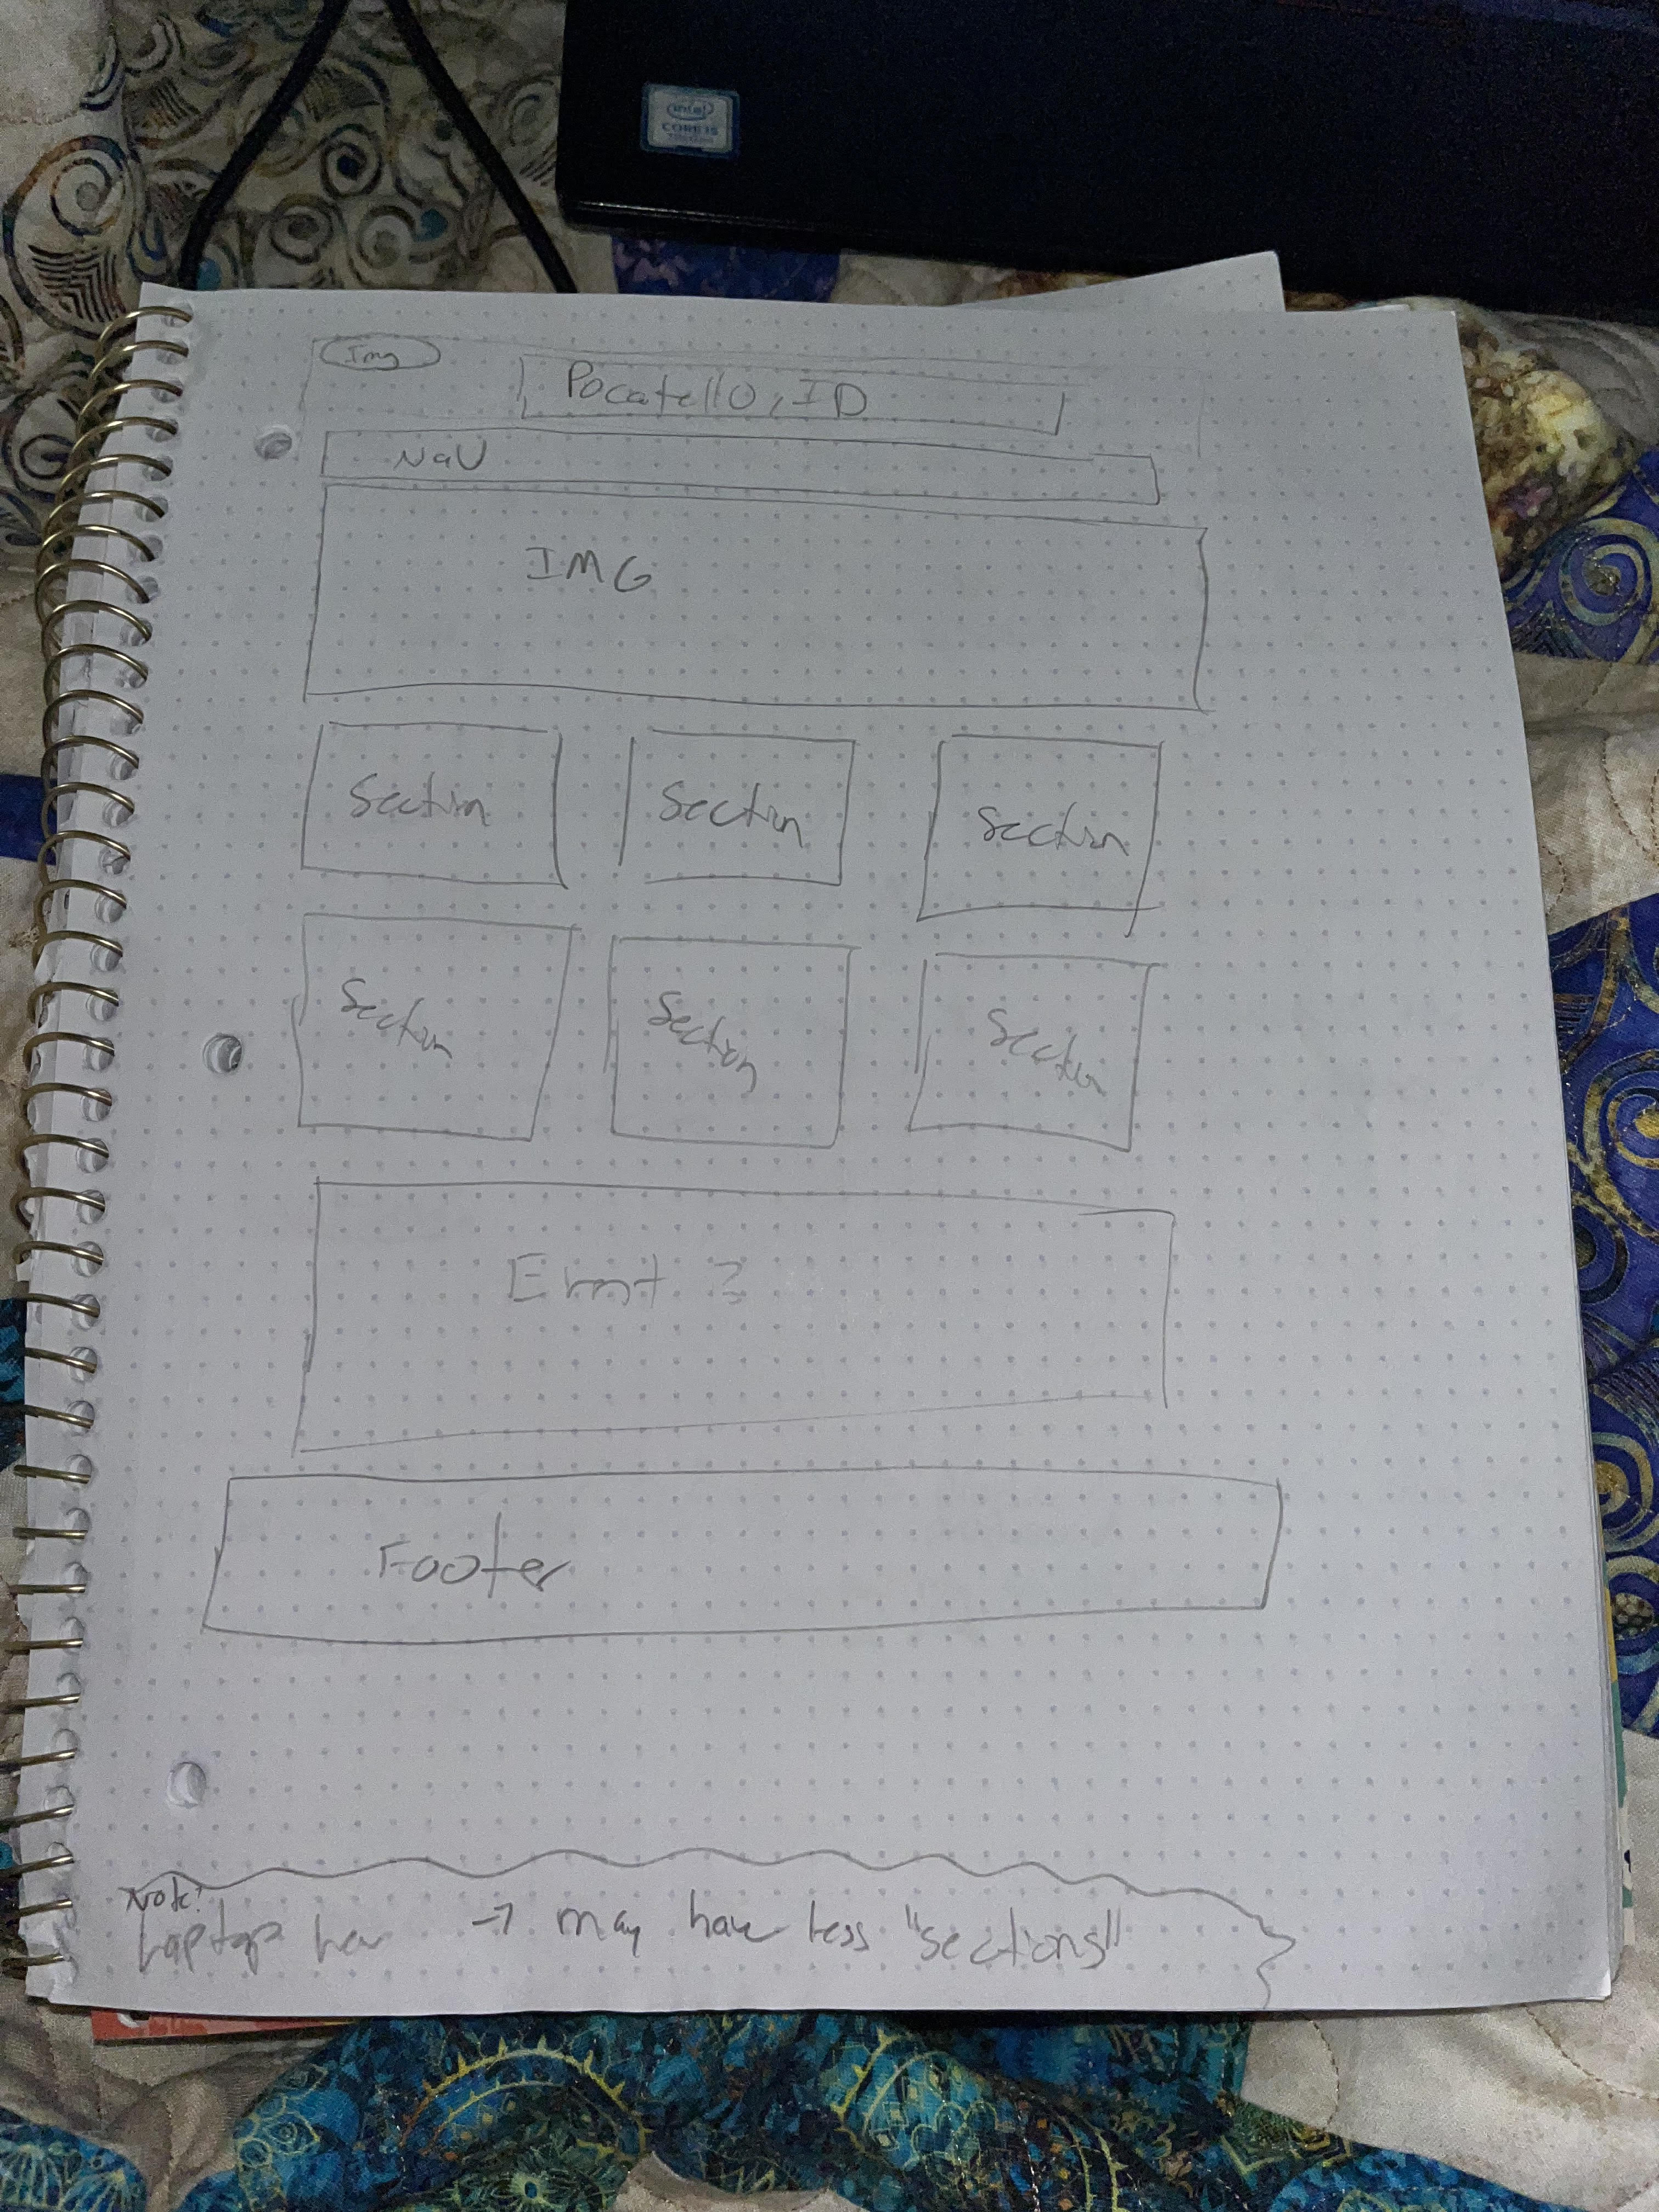 intel
CORE i5
Img
Pocatello, ID
Nav
IMG
Section Section Section
Section Section Section
Event ?
Footer
Note:
Laptop → may have less "sections"